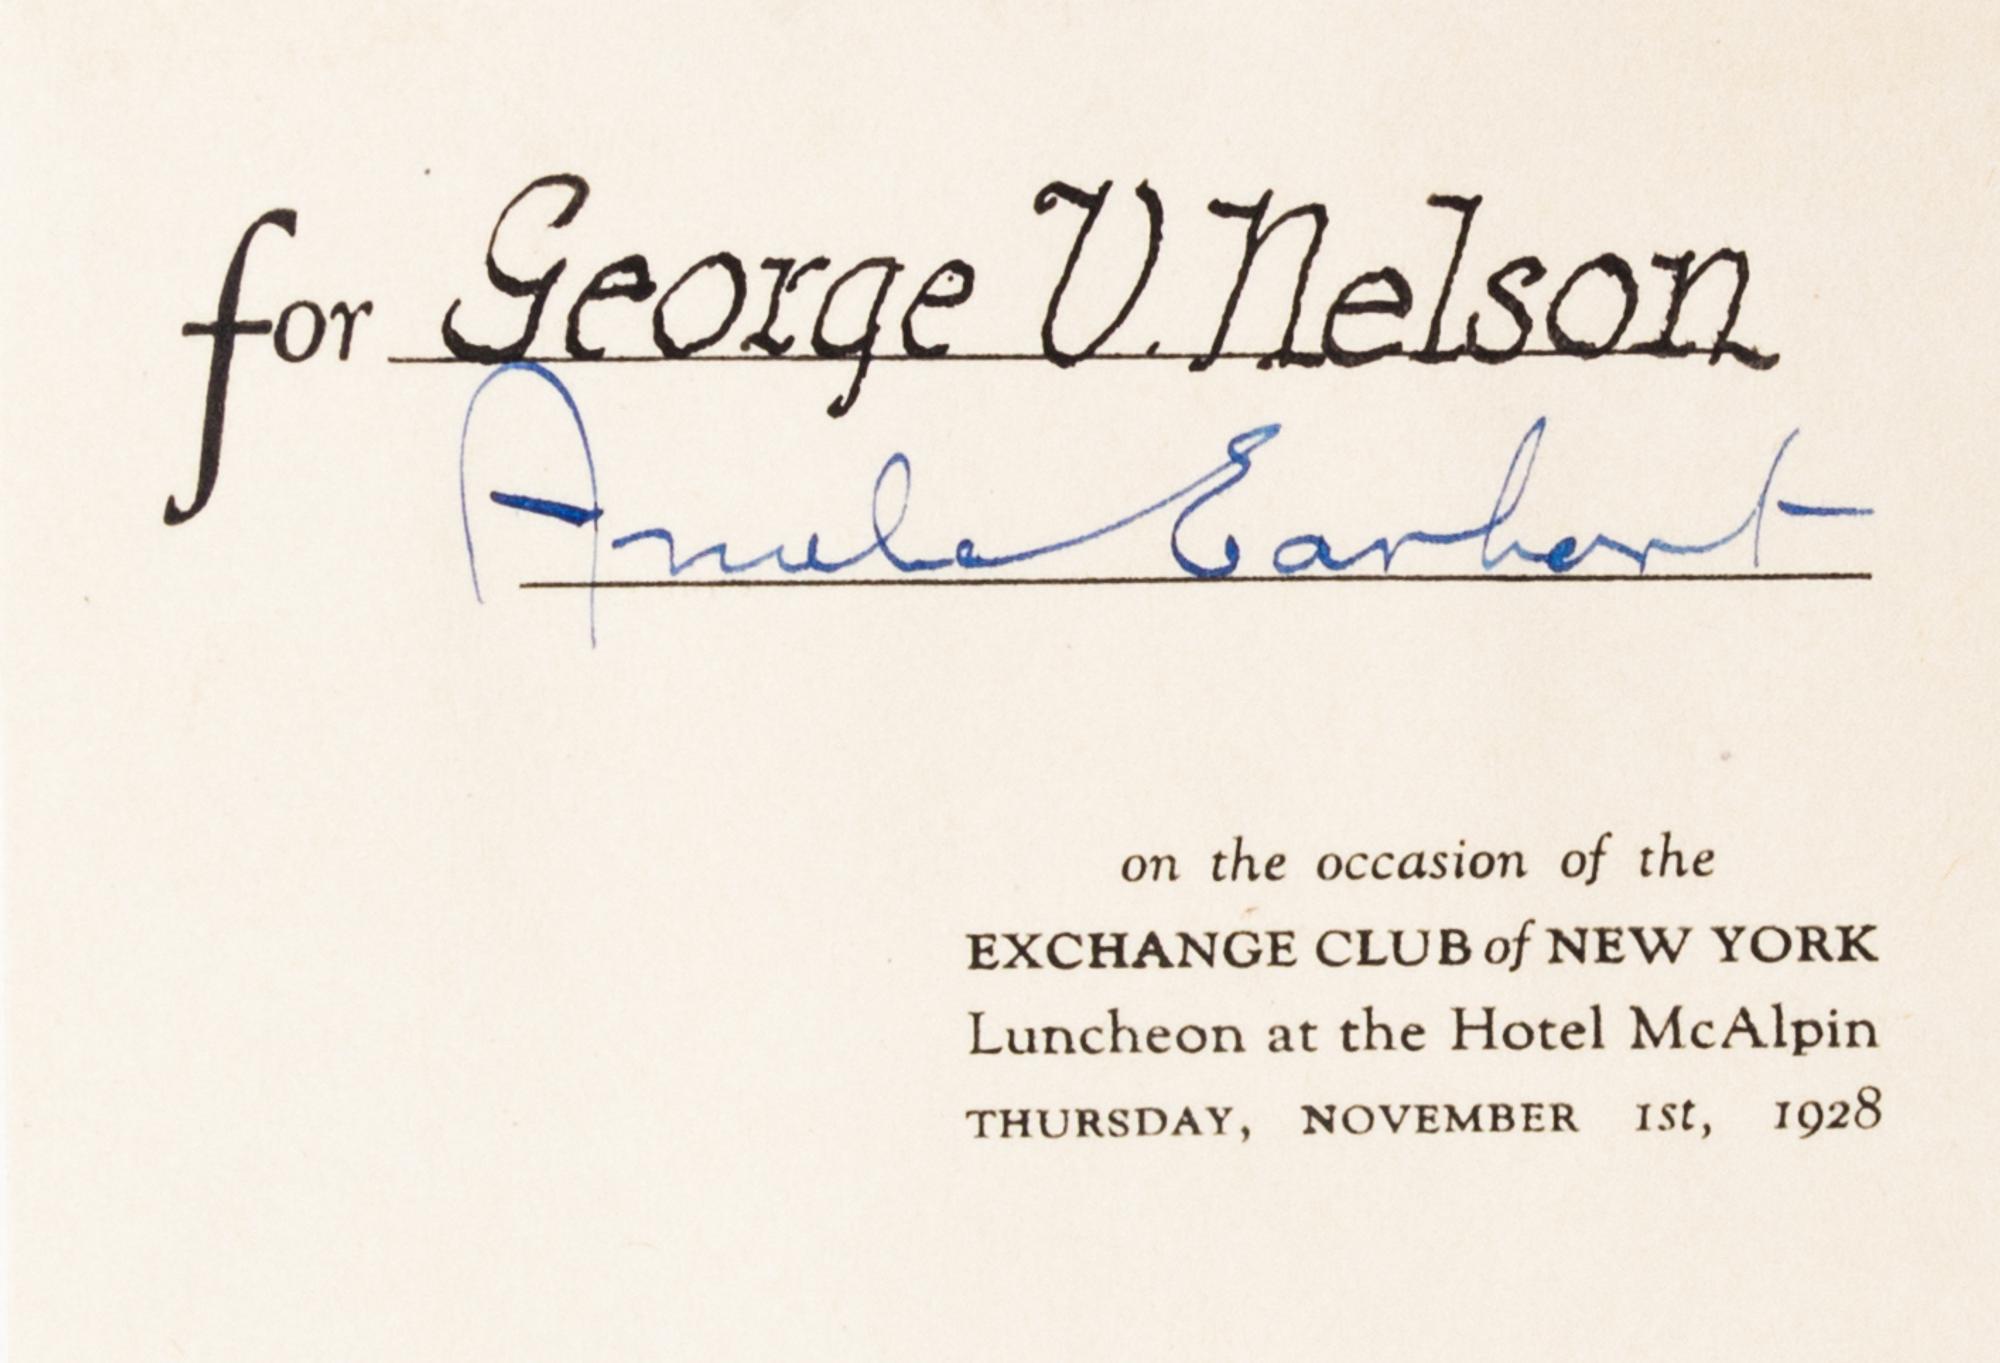 for George V. Nelson
Amelia Earhart
on the occasion of the
EXCHANGE CLUB of NEW YORK
Luncheon at the Hotel McAlpin
THURSDAY, NOVEMBER 1st, 1928